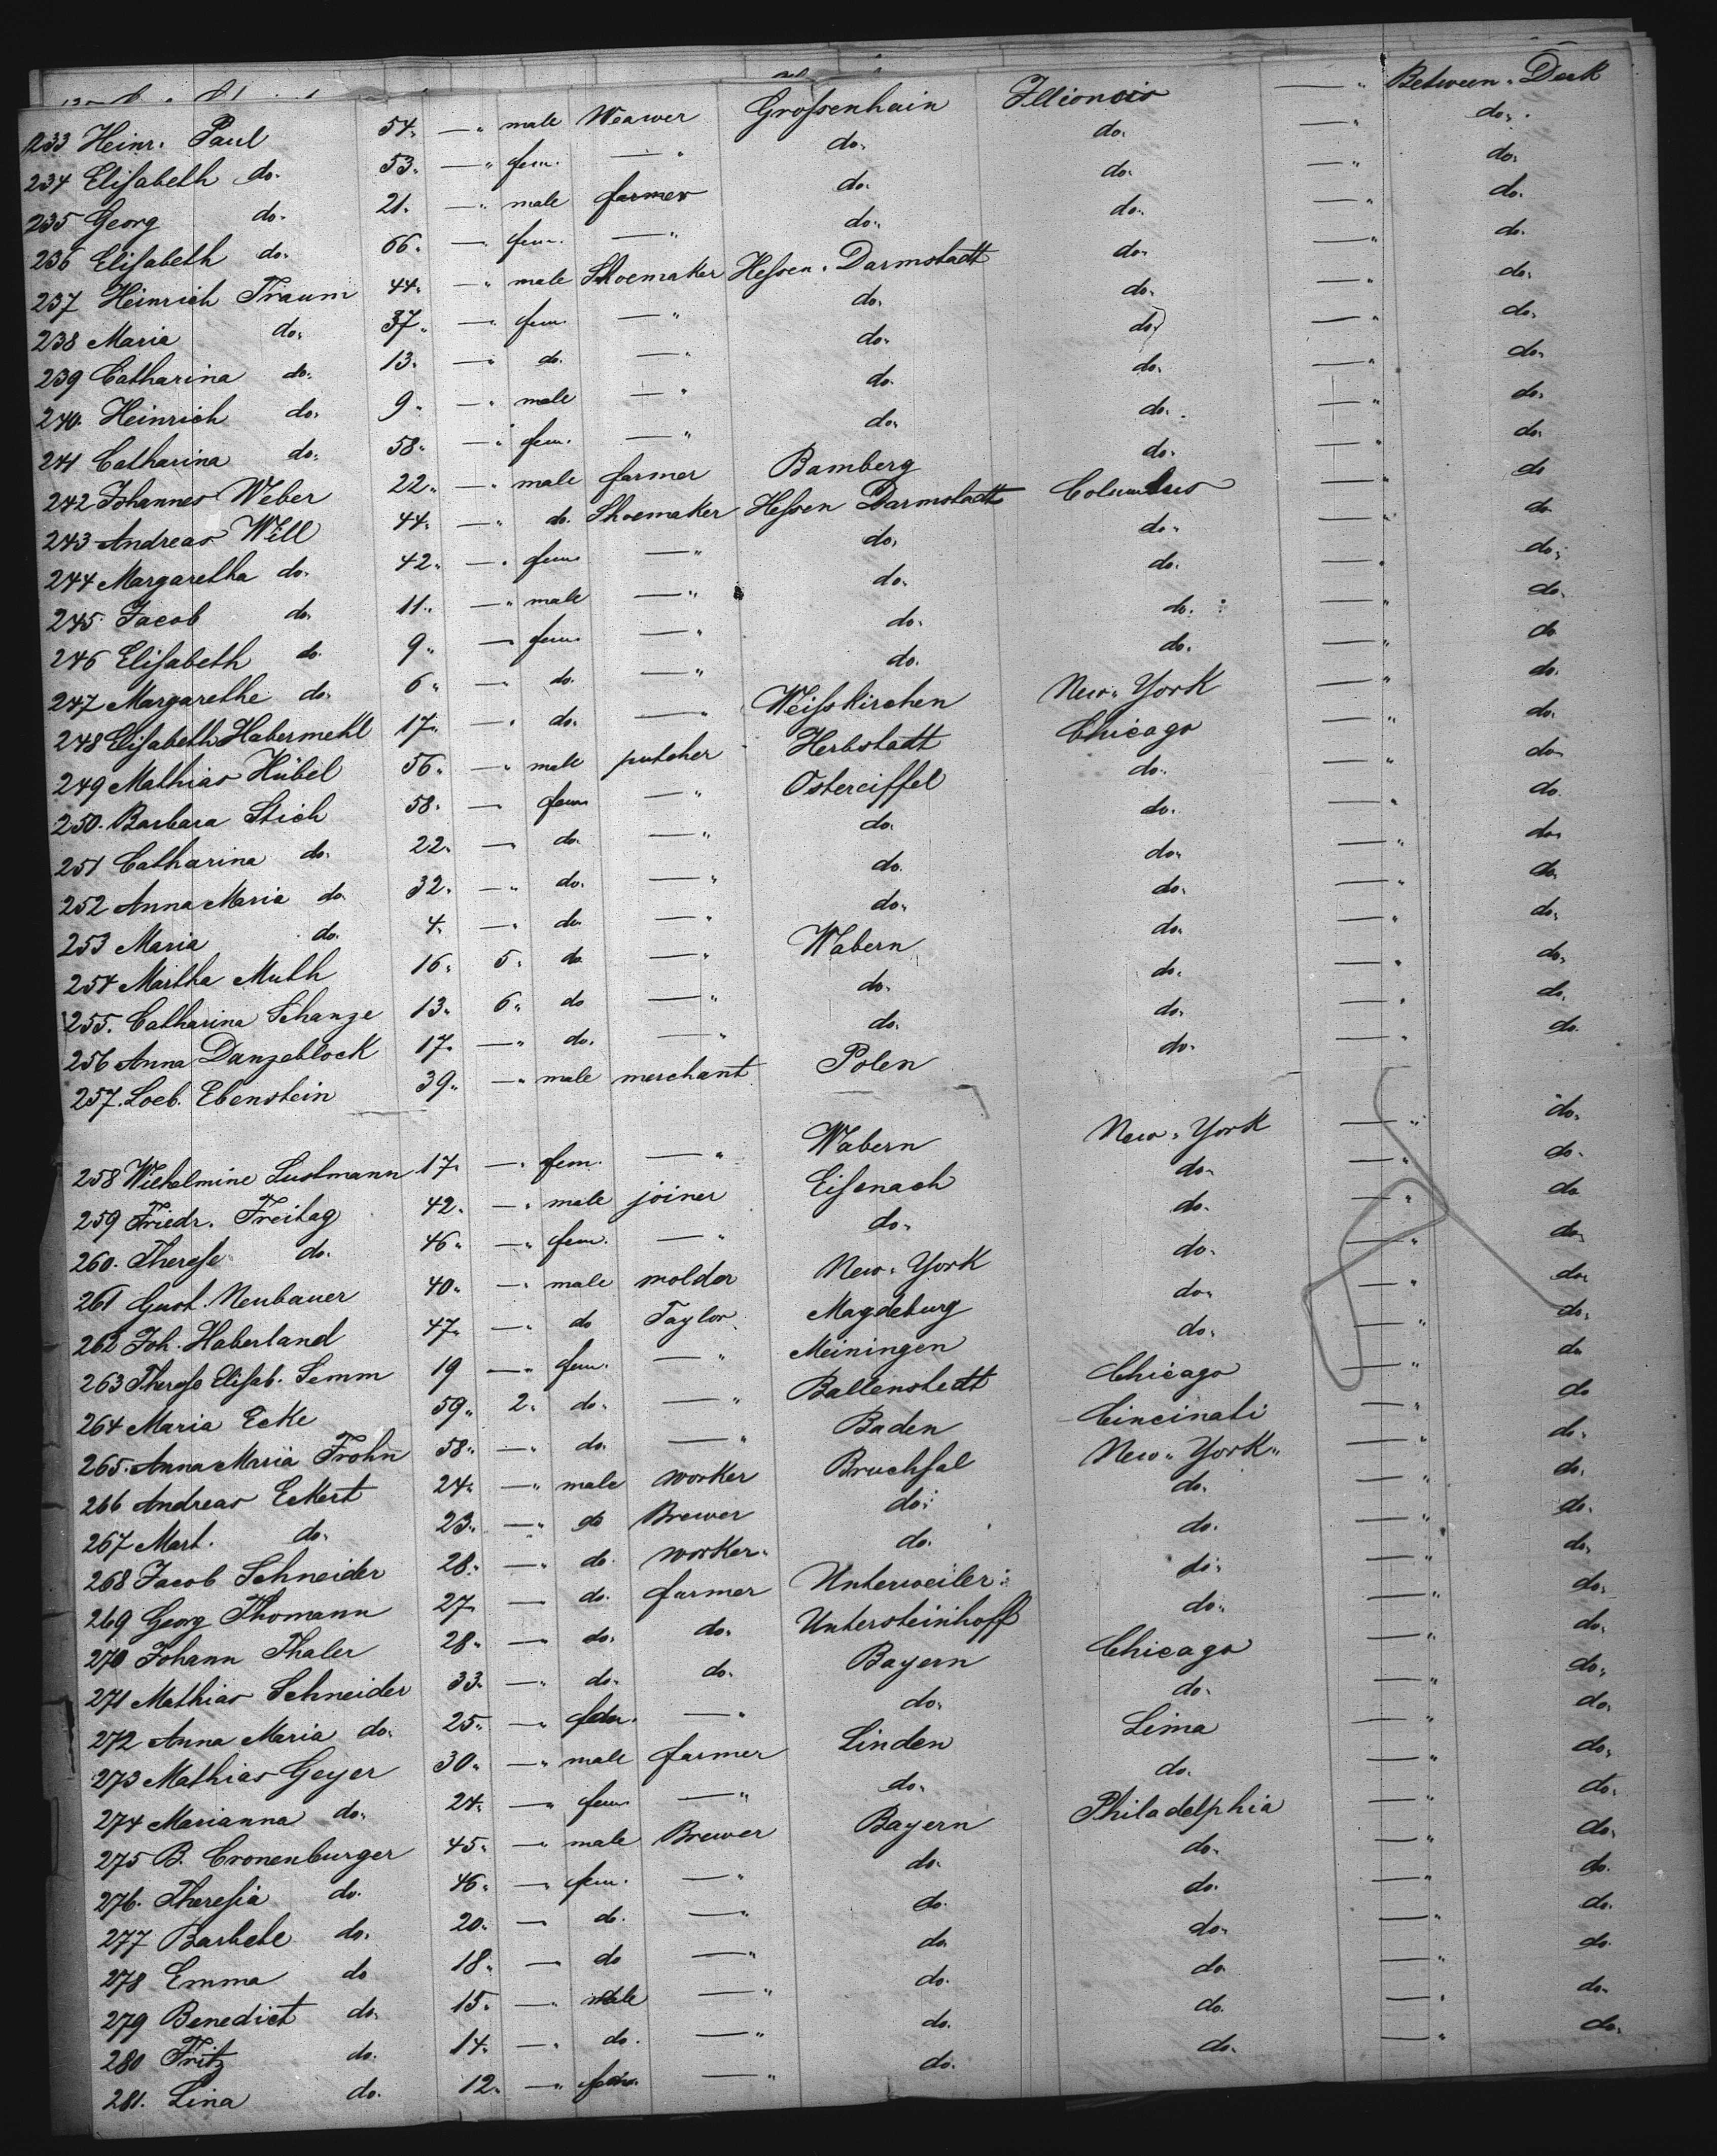 233 Heinr. Paul 54. —" male Weawer Großenhain Illionois —" Between-Deck
234 Elisabeth do. 53. —" fem. —" do. do. —" do.
235 Georg do. 21. —" male farmer do. do. —" do.
236 Elisabeth do. 66. —" fem. —" do. do. —" do.
237 Heinrich Traum 44. —" male Shoemaker Heßen-Darmstadt do. —" do.
238 Maria do. 37. —" fem. —" do. do. —" do.
239 Catharina do. 13. —" do. —" do. do. —" do.
240. Heinrich do. 9. —" male —" do. do. —" do.
241 Catharina do. 58. —" fem. —" do. do. —" do.
242 Johannes Weber 22. —" male farmer Bamberg do. —" do.
243 Andreas Will 44. —" do. Shoemaker Heßen Darmstadt Columbus —" do
244 Margaretha do. 42. —" fem —" do. do. —" do.
245. Jacob do. 11. —" male —" do. do. —" do.
246 Elisabeth do. 9. — fem. —" do. do. —" do.
247 Margarethe do. 6. —" do. —" do. do. —" do.
248 Elisabeth Habermehl 17. —" do. —" Weißkirchen New-York —" do.
249 Mathias Hübel 56. —" male putcher Herbstadt Chicago —" do.
250. Barbara Stich 58. — fem —" Ostereiffel do. —" do.
251 Catharina do. 22. — do. —" do. do. —" do.
252 Anna Maria do. 32. —" do. —" do. do. —" do.
253 Maria do. 4. —" do. —" do. do. —" do.
254 Martha Muth 16. 5. do. —" Wabern do. —" do.
255. Catharina Schanze 13. 6. do —" do. do. —" do.
256 Anna Danzeblock 17. —" do. —" do. do. —" do.
257. Loeb. Ebenstein 39. —" male merchant Polen do. —" do.
258 Wilhelmine Lustmann 17. —" fem. —" Wabern New-York —" do.
259 Friedr. Freitag 42. —" male joiner Eisenach do. —" do.
260. Therese do. 46. —" fem. —" do. do. —" do.
261 Gust. Neubauer 40. —" male molder New-York do. —" do.
262 Joh. Haberland 47. —" do Taylor Magdeburg do. —" do.
263 Therese Elisab. Semm 19 —" fem. —" Meiningen do. —" do.
264 Maria Ecke 59. 2. do. —" Ballenstedt Chicago —" do
265. Anna Maria Frohn 58. —" do. —" Baden Cincinati —" do
266 Andreas Eckert 24. —" male worker Bruchsal New-York —" do.
267 Mart. do. 23. —" do Brewer do. do. —" do.
268 Jacob Schneider 28. —" do. worker. do. do. —" do.
269 Georg Thomann 27. — do. farmer Unterweiler do. —" do.
270 Johann Thaler 28. —" do. do. Untersteinhoff do. —" do.
271 Mathias Schneider 33. —" do. do. Bayern Chicago —" do.
272 Anna Maria do. 25. —" fem. —" do. do. —" do.
273 Mathias Geyer 30. —" male farmer Linden Lima —" do.
274 Marianna do. 24. —" fem —" do. do. —" do.
275 B. Cronenburger 45. —" male Brewer Bayern Philadelphia —" do.
276. Theresia do. 46. —" fem. —" do. do. —" do.
277 Barbete do. 20. — do. —" do. do. —" do.
278 Emma do 18. — do —" do. do. —" do.
279 Benedict do. 15. —" male —" do. do —" do.
280 Fritz do. 14. —" do. —" do. do. —" do.
281. Lina do. 12. —" fem. —" do. do. —" do.